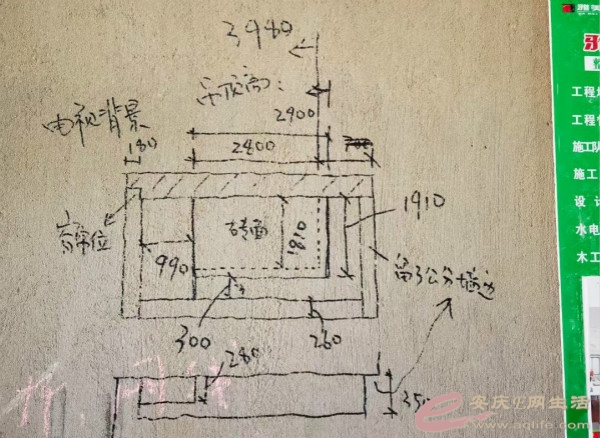 3980
吊顶高:
2900
电视背景
180
2800
窗帘位
砖面
1810
1910
990
留3公分墙边
300
260
280
350
雅
工程
工程
施工队
施工
设计
水电
木工
安庆E网生活
www.aqlife.com